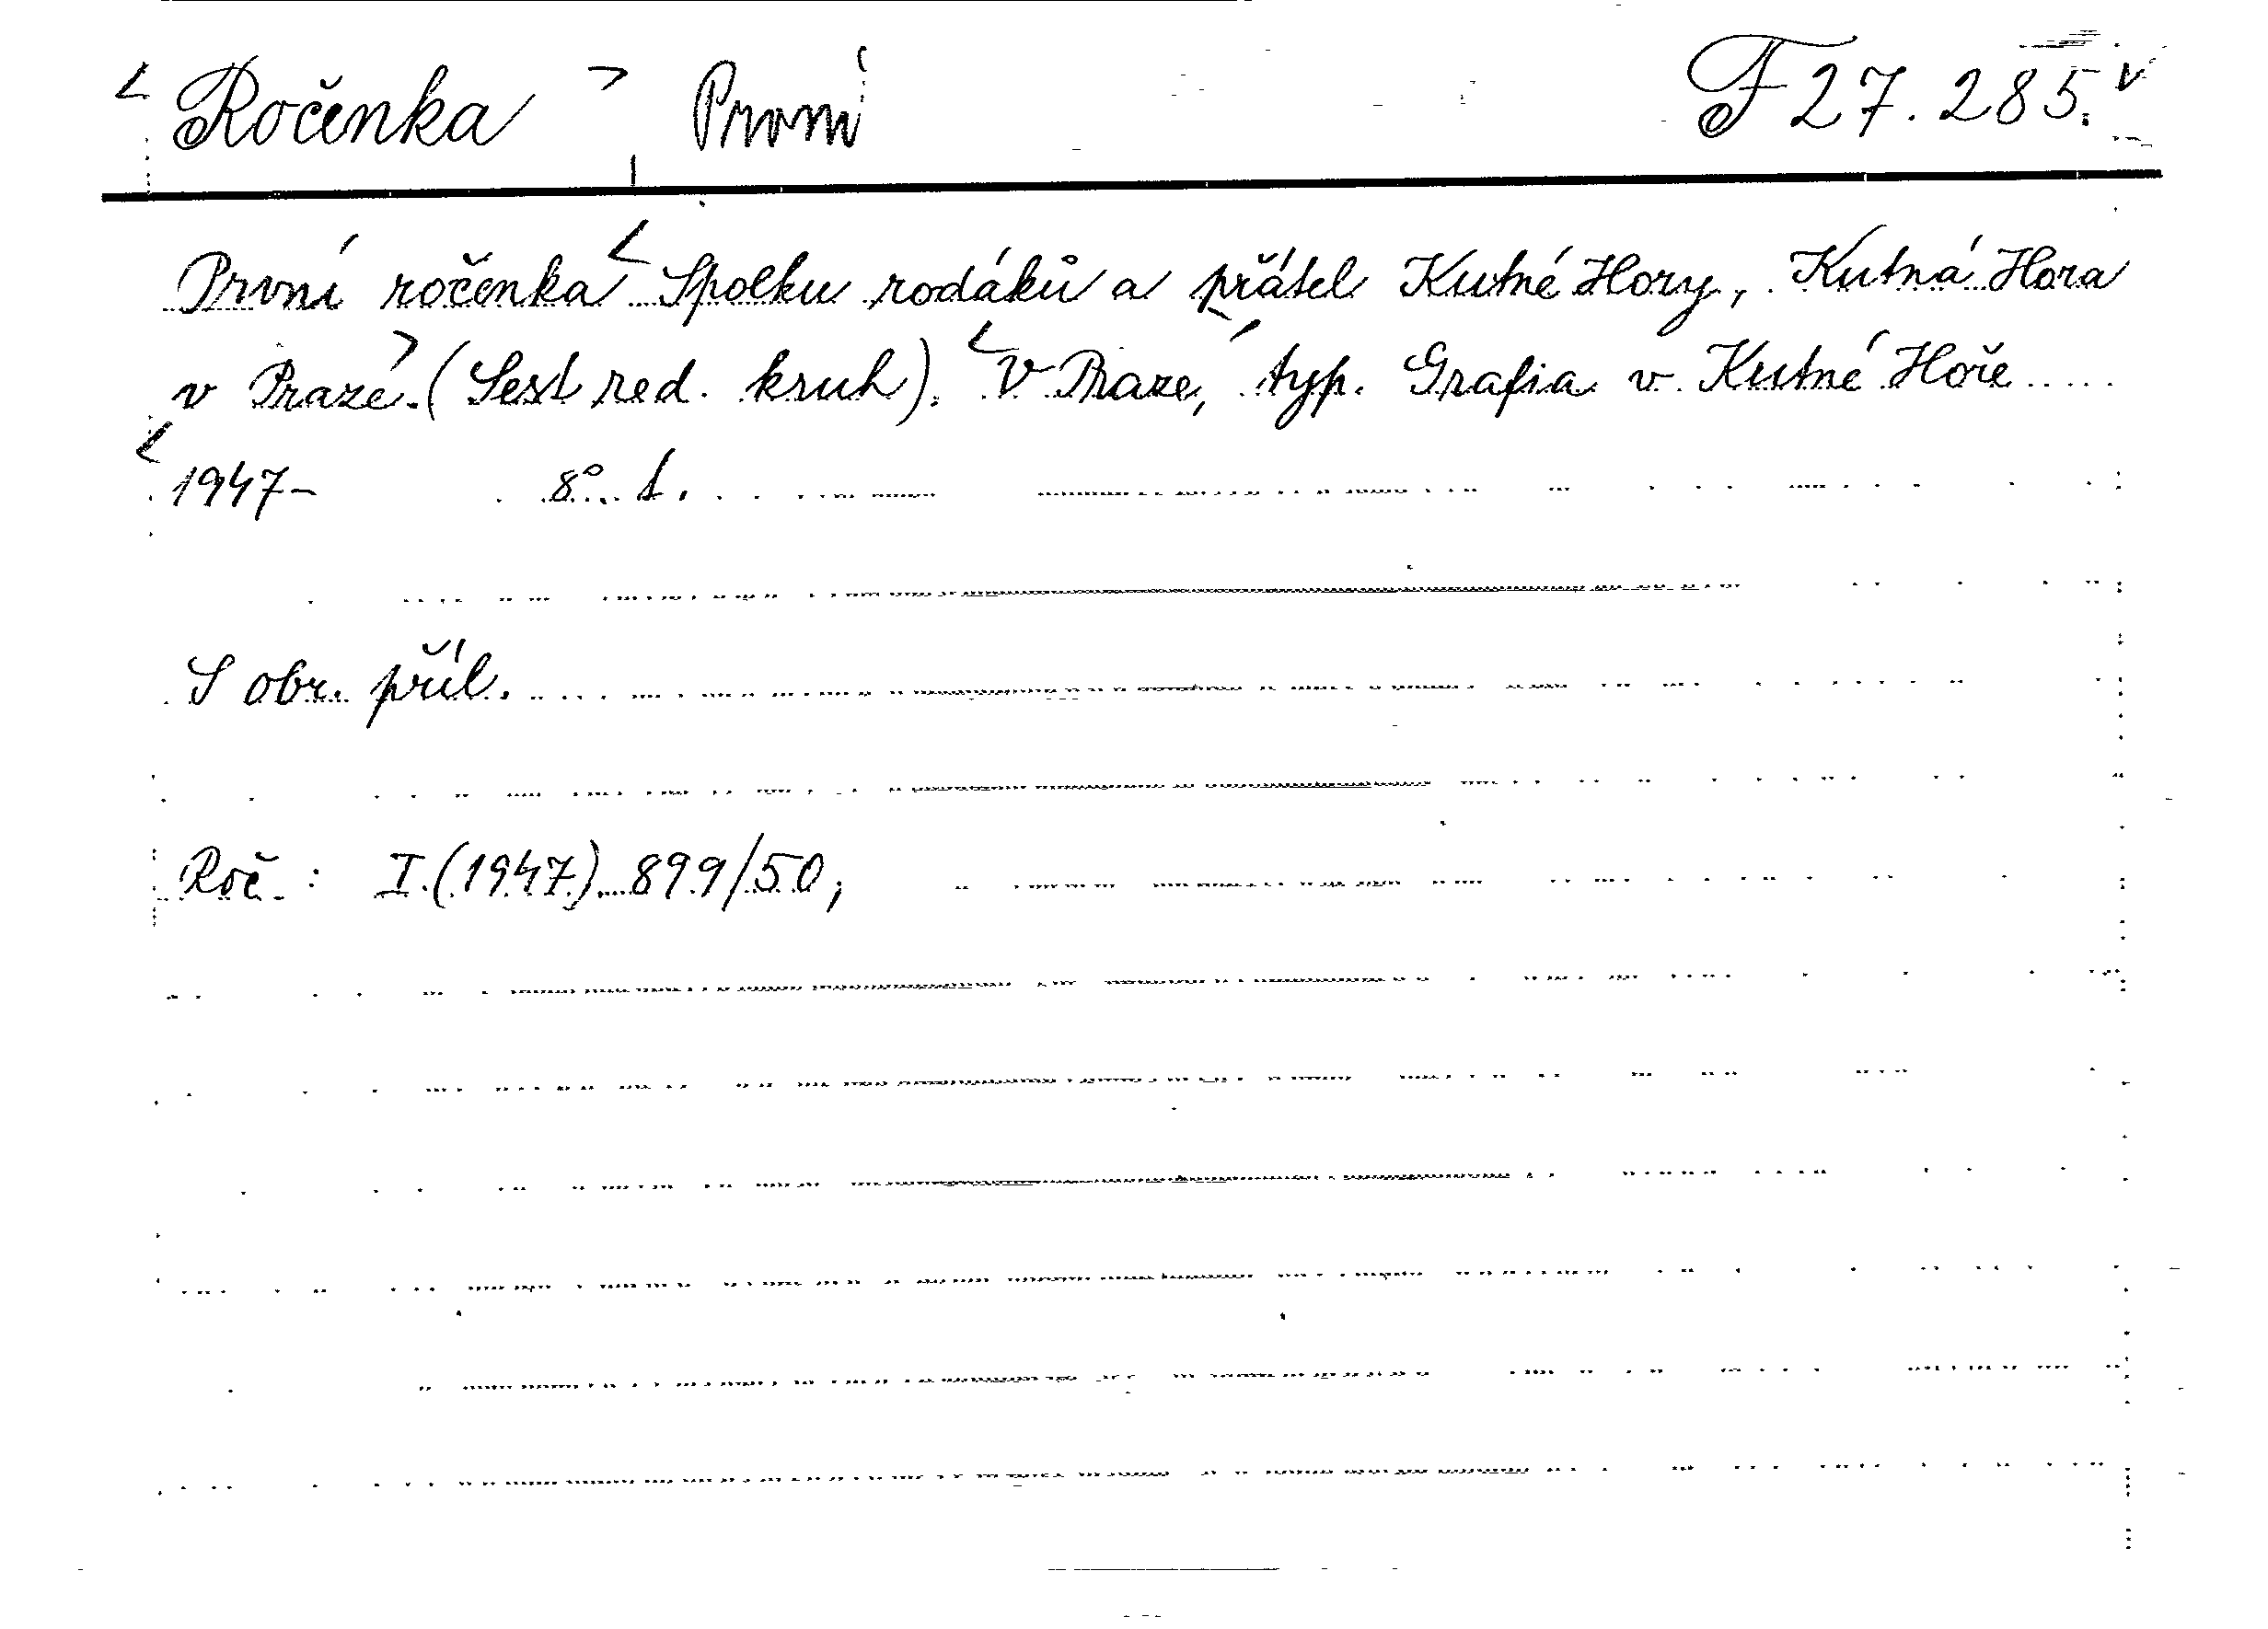 < Ročenka > První F 27.285.v
První ročenka < Spolku rodáků a přátel Kutné Hory, Kutná Hora
v Praze.> (Sest red. kruh). < V Praze, typ. Grafia v Kutné Hoře
< 1947– 8° s.
S obr. příl.
Roč. : I.(1947) 899/50,